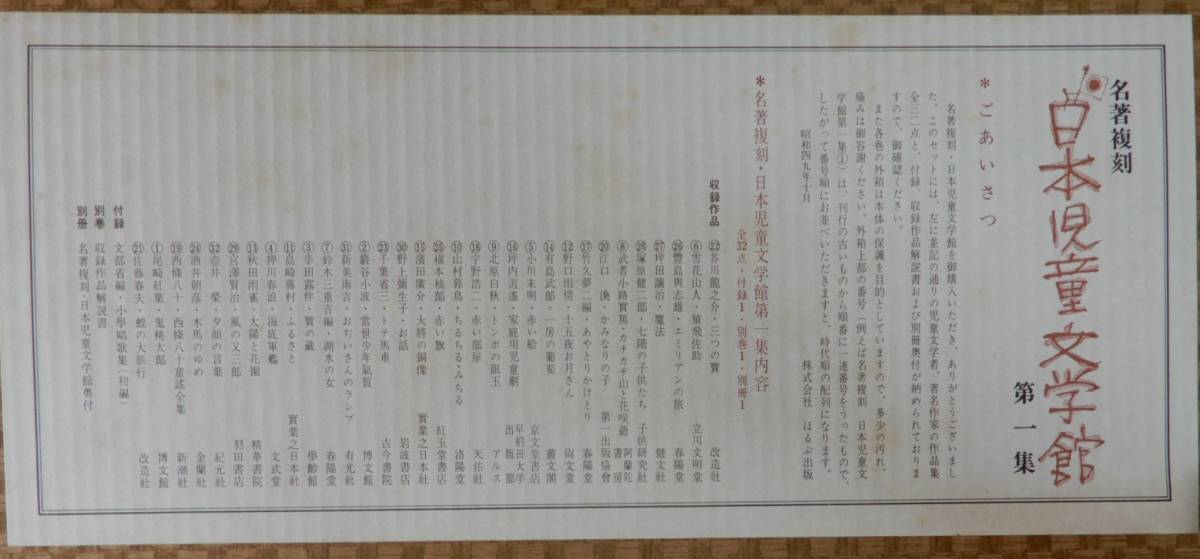 名著複刻
日本児童文学館
第一集
＊ごあいさつ
名著複刻・日本児童文学館を御購入いただき、ありがとうございまし
た。このセットには、左に並記の通りの児童文学者、著名作家の作品集
全三二点と、付録、収録作品解説書および別冊奥付が納められておりま
すので、御確認ください。
また各巻の外箱は本体の保護を目的としていますので、多少の汚れ、
痛みは御容謝ください。外箱上部の番号（例えば名著複刻 日本児童文
学館第一集①）は、刊行の古いものから順番に一連番号をうったもので、
したがって番号順にお並べいただきますと、時代順の配列になります。
昭和四九年十月
株式会社 ほるぷ出版
＊名著複刻・日本児童文学館第一集内容
全32点・付録1・別巻1・別冊1
収録作品
㉒芥川龍之介・三つの寶 改造社
⑥雪花山人・猿飛佐助 立川文明堂
㉖豐島與志雄・エミリアンの旅 春陽堂
㉗坪田讓治・魔法 健文社
㉘塚原健二郎・七階の子供たち 子供研究社
⑧武者小路實篤・カチカチ山と花咲爺 阿蘭陀書房
⑳江口 渙・かみなりの子 第一出版協會
⑰竹久夢二編・あやとりかけとり 春陽堂
⑫野口雨情・十五夜お月さん 尙文堂
⑭有島武郎・一房の葡萄 叢文閣
⑤小川未明・赤い船 京文堂書店
⑯坪内逍遙・家庭用児童劇 早稲田大学出版部
⑨北原白秋・トンボの眼玉 アルス
⑱宇野浩二・赤い部屋 天佑社
⑩山村暮鳥・ちるちる・みちる 洛陽堂
㉕槇本楠郎・赤い旗 紅玉堂書店
⑮濱田廣介・大將の銅像 實業之日本社
㉚野上彌生子・お話 岩波書店
㉓千葉省三・トテ馬車 古今書院
②巖谷小波・當世少年氣質 博文館
㉛新美南吉・おぢいさんのランプ 有光社
⑦鈴木三重吉編・湖水の女 春陽堂
③幸田露伴・寶の蔵 學齡館
⑪島崎藤村・ふるさと 實業之日本社
④押川春浪・海底軍艦 文武堂
⑬秋田雨雀・太陽と花園 精華書院
㉙宮澤賢治・風の又三郎 羽田書店
㉜壺井 榮・夕顔の言葉 紀元社
㉔酒井朝彦・木馬のゆめ 金蘭社
⑲西條八十・西條八十童謠全集 新潮社
①尾崎紅葉・鬼桃太郎 博文館
㉑佐藤春夫・蝗の大旅行 改造社
付録 文部省編・小學唱歌集（初編）
別巻 収録作品解説書
別冊 名著複刻・日本児童文学館奥付